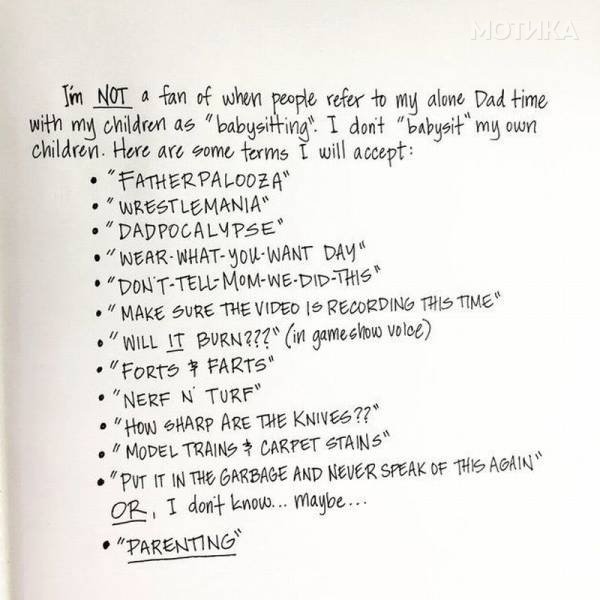 МОТИКА
I'm NOT a fan of when people refer to my alone Dad time
with my children as "babysitting". I don't "babysit" my own
children. Here are some terms I will accept:
• "FATHERPALOOZA"
• "WRESTLEMANIA"
• "DADPOCALYPSE"
• "WEAR-WHAT-YOU-WANT DAY"
• "DON'T-TELL-MOM-WE-DID-THIS"
• "MAKE SURE THE VIDEO IS RECORDING THIS TIME"
• "WILL IT BURN???" (in gameshow voice)
• "FORTS & FARTS"
• "NERF N' TURF"
• "HOW SHARP ARE THE KNIVES??"
• "MODEL TRAINS & CARPET STAINS"
• "PUT IT IN THE GARBAGE AND NEVER SPEAK OF THIS AGAIN"
OR, I don't know... maybe...
• "PARENTING"